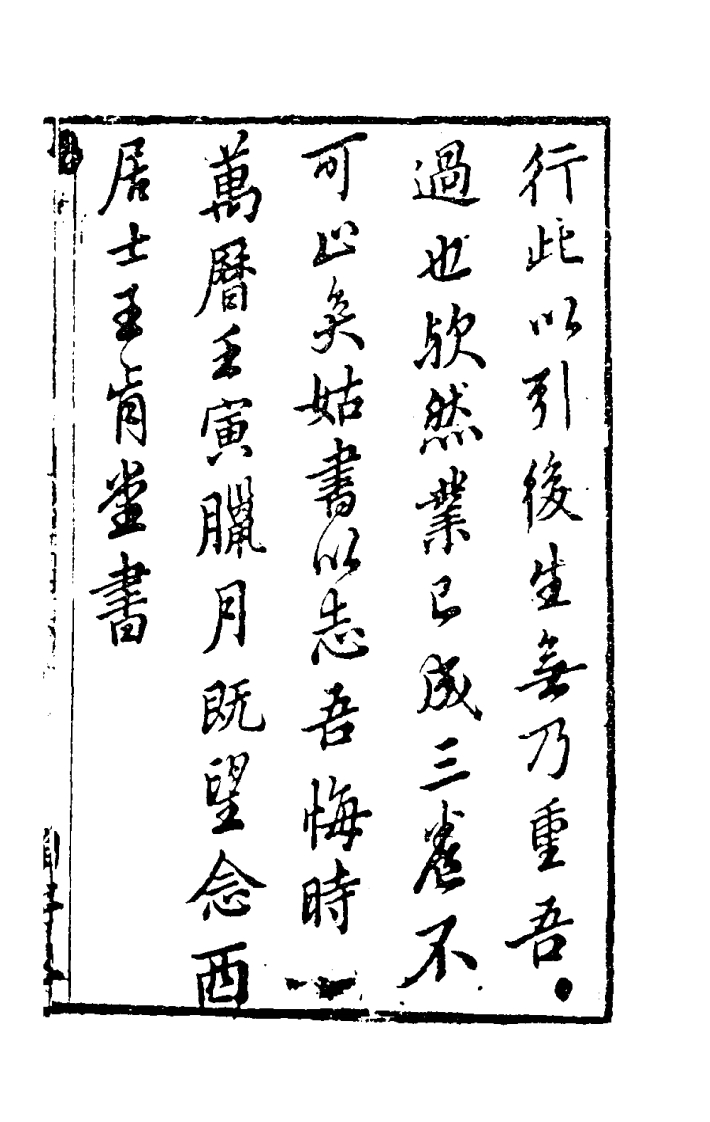 行此以引後生無乃重吾
過也歟然業已成三卷不
可止矣姑書以志吾悔時
萬曆壬寅臘月既望念西
居士王肯堂書